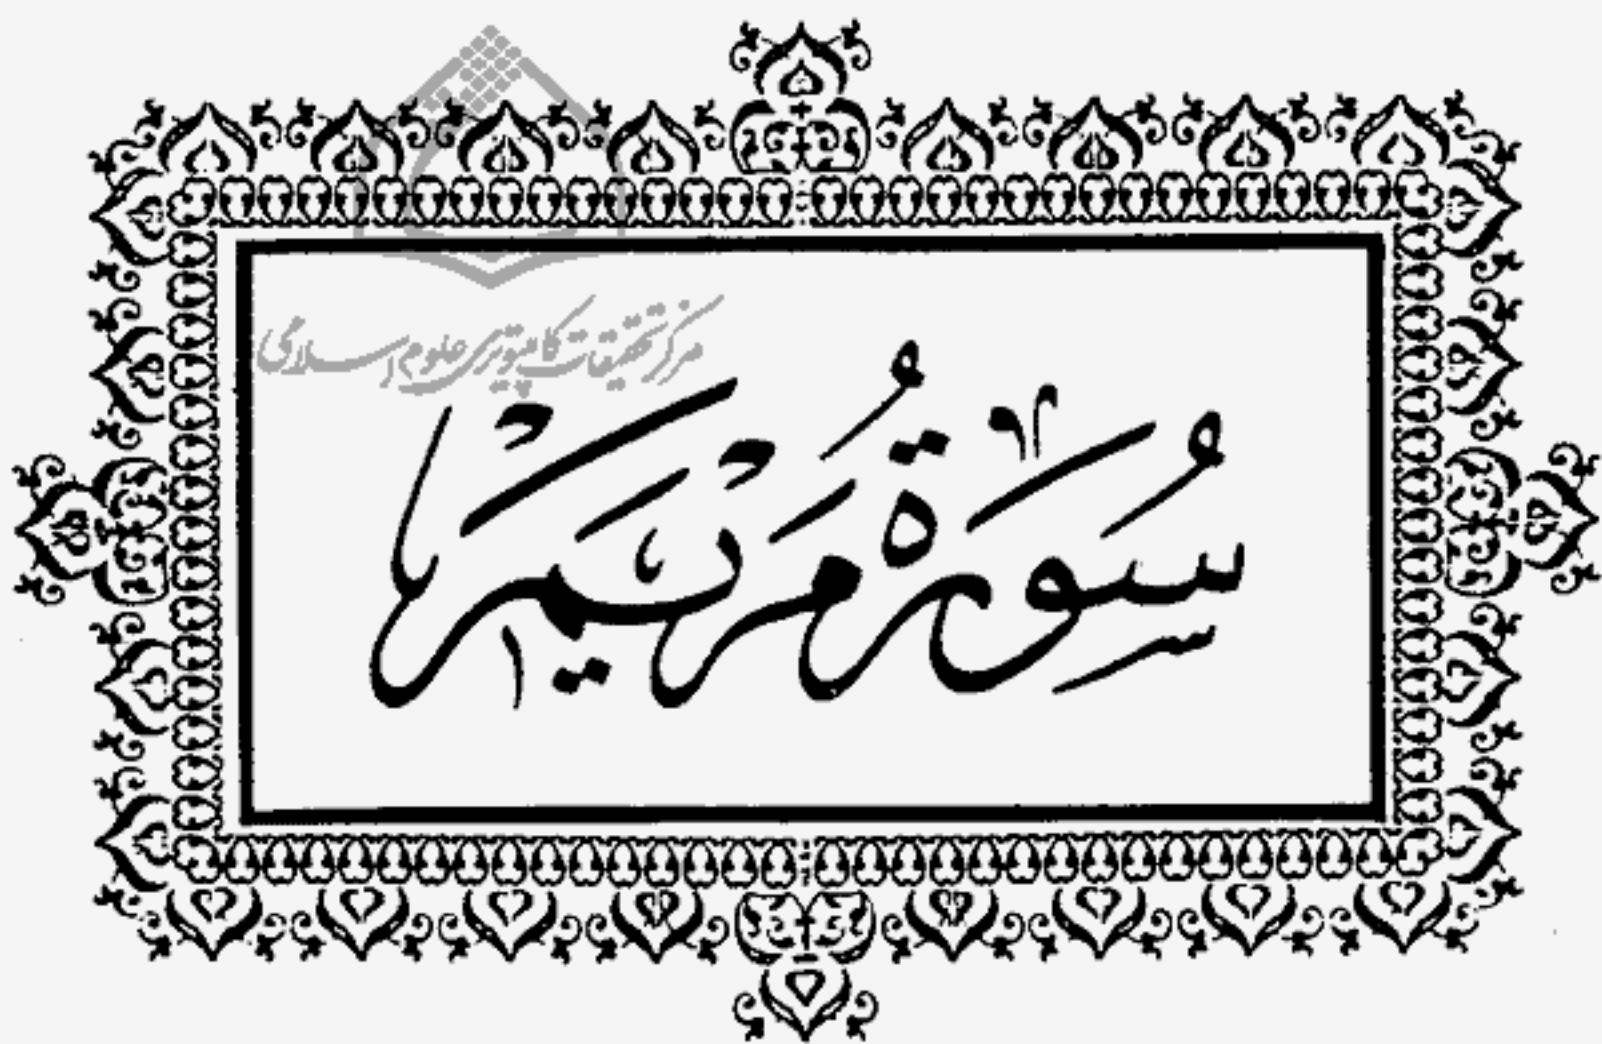 مرکز تحقیقات کامپیوتری علوم اسلامی
سُورَةُ مَرْيَمَ